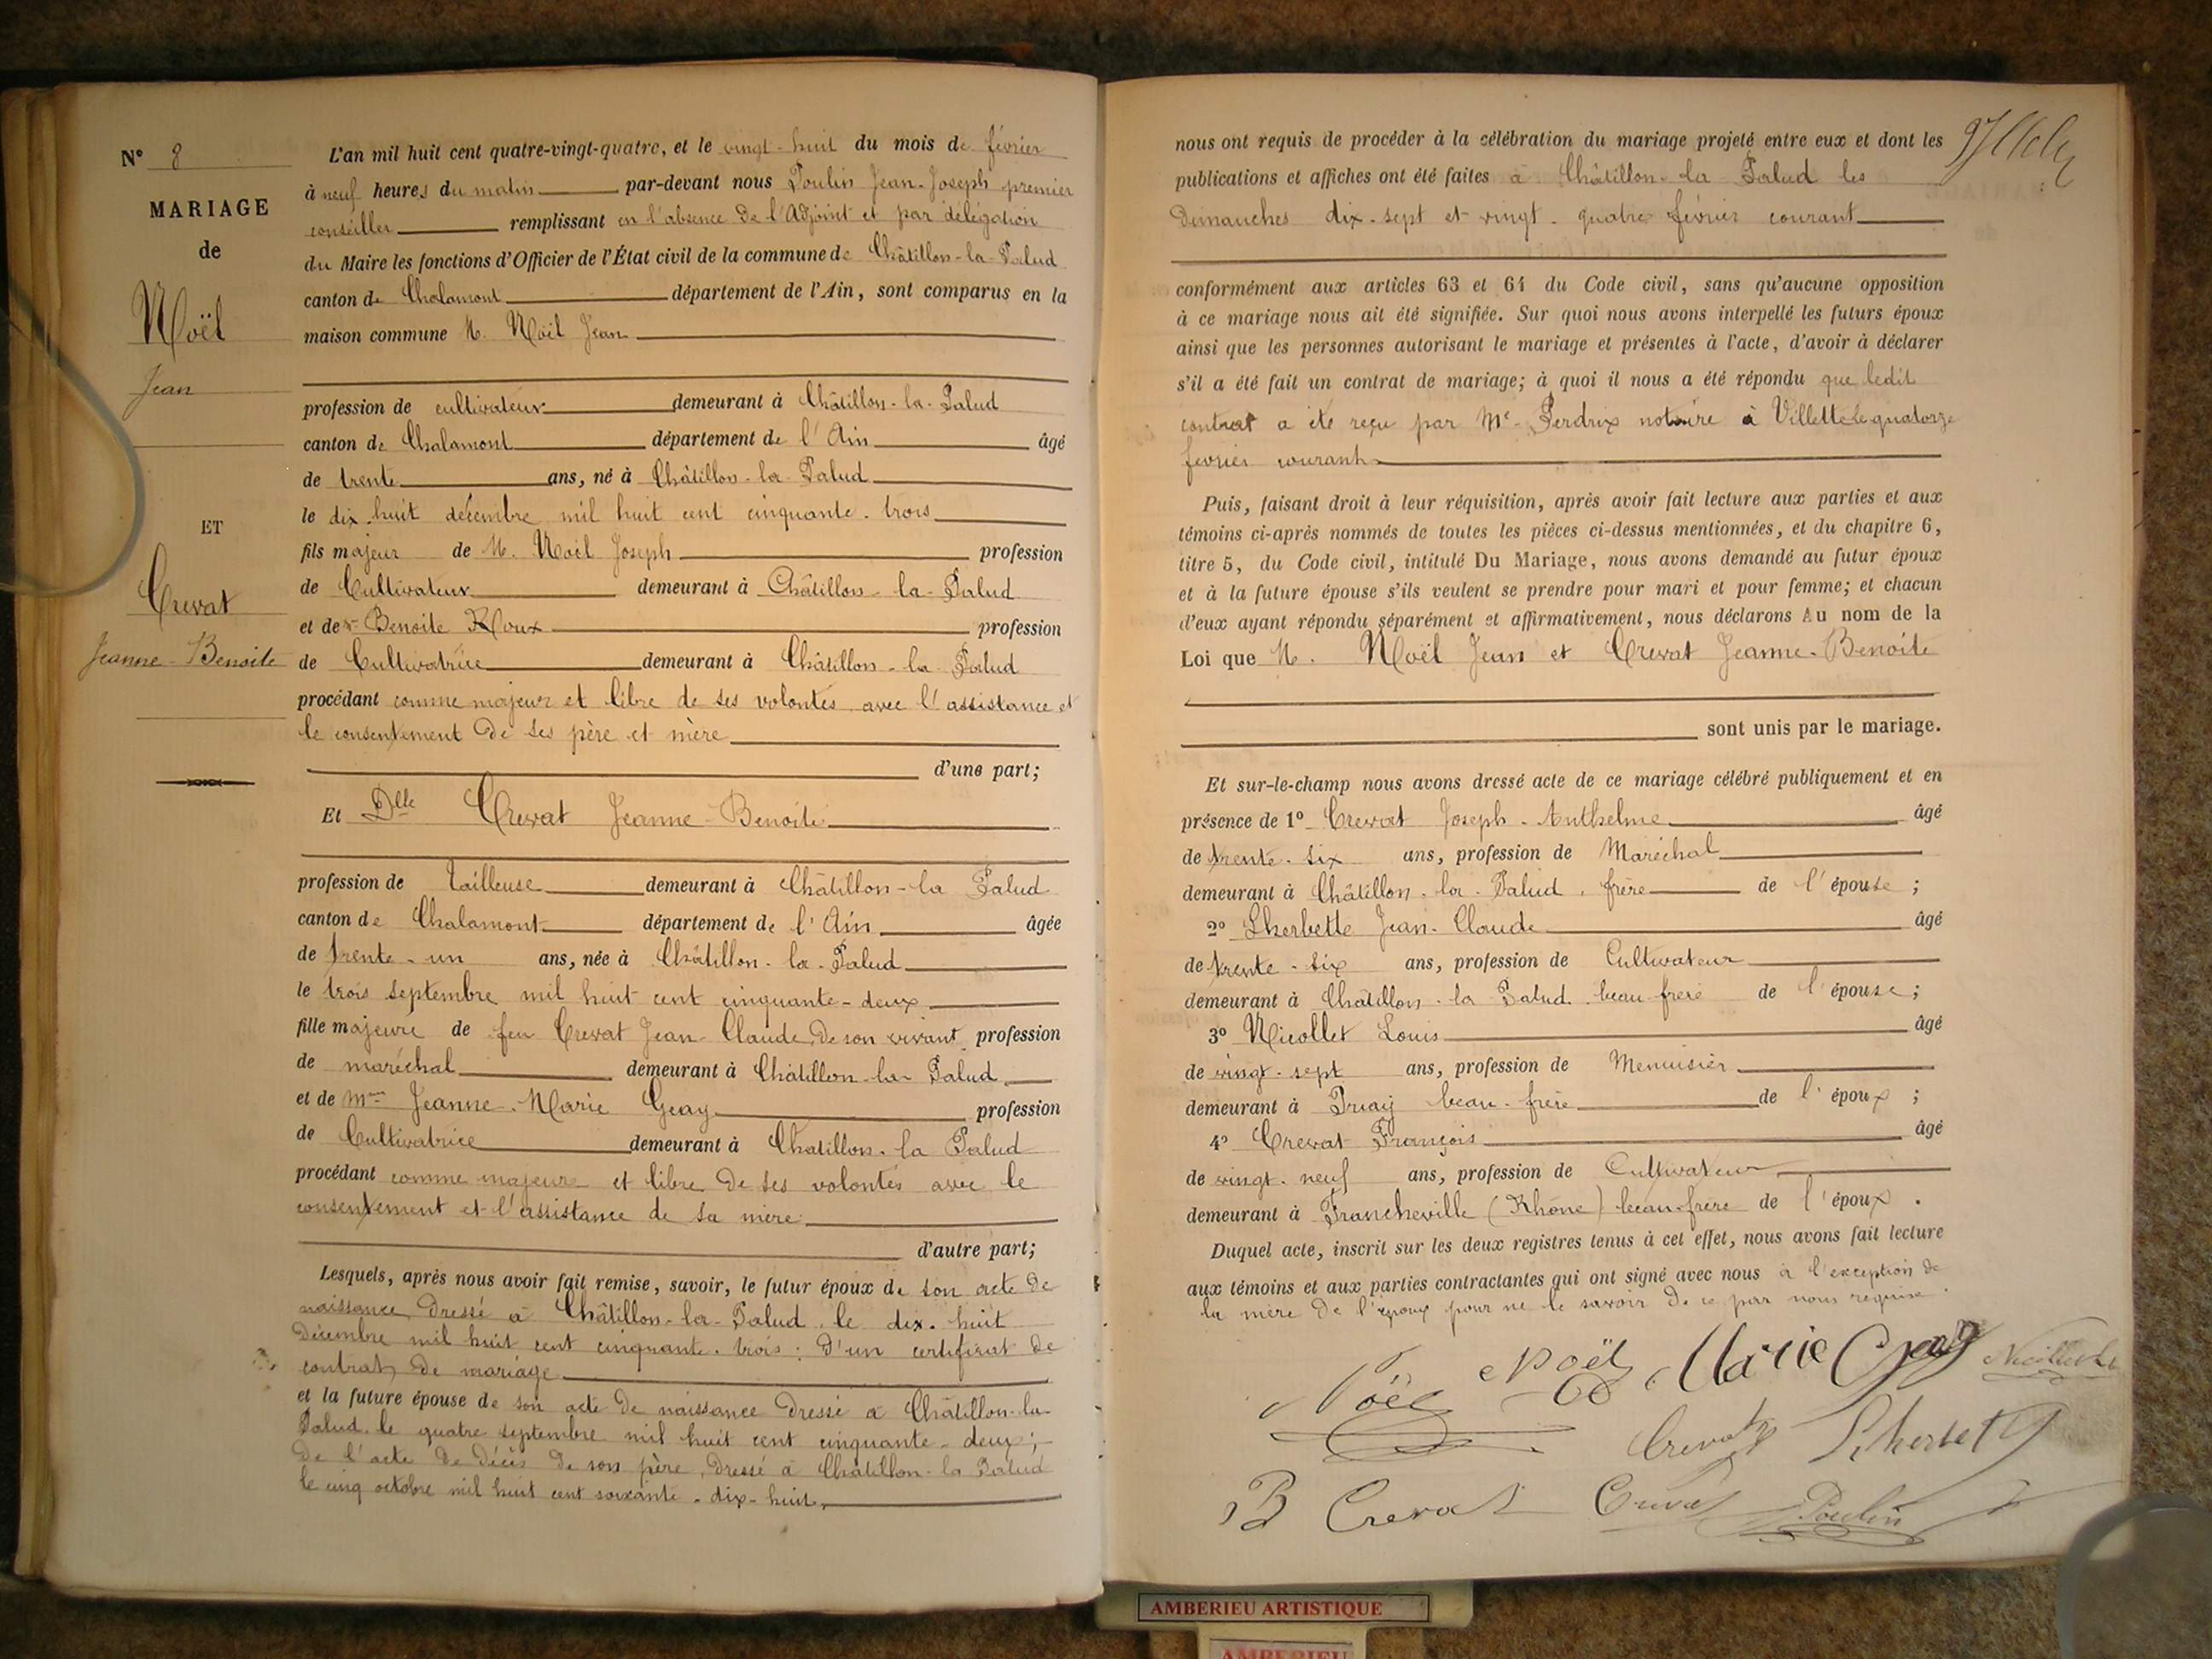 N° 8
MARIAGE
de
Noël
Jean
ET
Crevat
Jeanne-Benoîte
L'an mil huit cent quatre-vingt-quatre, et le vingt-huit du mois de février
à neuf heures du matin par-devant nous Poulin Jean-Joseph premier
conseiller remplissant en l'absence de l'Adjoint et par délégation
du Maire les fonctions d'Officier de l'État civil de la commune de Châtillon-la-Palud
canton de Chalamont département de l'Ain, sont comparus en la
maison commune M. Noël Jean
profession de cultivateur demeurant à Châtillon-la-Palud
canton de Chalamont département de l'Ain âgé
de trente ans, né à Châtillon-la-Palud
le dix-huit décembre mil huit cent cinquante-trois
fils majeur de M. Noël Joseph profession
de Cultivateur demeurant à Châtillon-la-Palud
et de Benoîte Roux profession
de Cultivatrice demeurant à Châtillon-la-Palud
procédant comme majeur et libre de ses volontés avec l'assistance et
le consentement de ses père et mère
d'une part;
Et Dlle Crevat Jeanne-Benoîte
profession de Tailleuse demeurant à Châtillon-la Palud
canton de Chalamont département de l'Ain âgée
de trente-un ans, née à Châtillon-la-Palud
le trois septembre mil huit cent cinquante-deux
fille majeure de feu Crevat Jean-Claude, de son vivant profession
de maréchal demeurant à Châtillon-la-Palud
et de Mme Jeanne-Marie Geay profession
de Cultivatrice demeurant à Chatillon-la Palud
procédant comme majeure et libre de ses volontés avec le
consentement et l'assistance de sa mère
d'autre part;
Lesquels, après nous avoir fait remise, savoir, le futur époux de son acte de
naissance dressé à Châtillon-la-Palud, le dix-huit
décembre mil huit cent cinquante-trois; d'un certificat de
contrat de mariage
et la future épouse de son acte de naissance dressé à Châtillon-la
Palud le quatre septembre mil huit cent cinquante-deux;
de l'acte de décès de son père, dressé à Châtillon-la Palud
le cinq octobre mil huit cent soixante-dix-huit,
nous ont requis de procéder à la célébration du mariage projeté entre eux et dont les
publications et affiches ont été faites à Châtillon-la Palud les
Dimanches dix-sept et vingt-quatre février courant
conformément aux articles 63 et 64 du Code civil, sans qu'aucune opposition
à ce mariage nous ait été signifiée. Sur quoi nous avons interpellé les futurs époux
ainsi que les personnes autorisant le mariage et présentes à l'acte, d'avoir à déclarer
s'il a été fait un contrat de mariage; à quoi il nous a été répondu que ledit
contrat a été reçu par Me Perdrix notaire à Villette le quatorze
février courant
Puis, faisant droit à leur réquisition, après avoir fait lecture aux parties et aux
témoins ci-après nommés de toutes les pièces ci-dessus mentionnées, et du chapitre 6,
titre 5, du Code civil, intitulé Du Mariage, nous avons demandé au futur époux
et à la future épouse s'ils veulent se prendre pour mari et pour femme; et chacun
d'eux ayant répondu séparément et affirmativement, nous déclarons Au nom de la
Loi que M. Noël Jean et Crevat Jeanne-Benoîte
sont unis par le mariage.
Et sur-le-champ nous avons dressé acte de ce mariage célébré publiquement et en
présence de 1° Crevat Joseph-Anthelme âgé
de trente-six ans, profession de Maréchal
demeurant à Châtillon-la-Palud, frère de l'épouse;
2° Lherbette Jean-Claude âgé
de trente-six ans, profession de Cultivateur
demeurant à Châtillon-la Palud beau-frère de l'épouse;
3° Nicollet Louis âgé
de vingt-sept ans, profession de Menuisier
demeurant à Priay beau-frère de l'époux;
4° Crevat François âgé
de vingt-neuf ans, profession de Cultivateur
demeurant à Francheville (Rhône) beau-frère de l'époux.
Duquel acte, inscrit sur les deux registres tenus à cet effet, nous avons fait lecture
aux témoins et aux parties contractantes qui ont signé avec nous à l'exception de
la mère de l'époux pour ne le savoir de ce par nous requise.
Noël Noël Marie Geay Nicollet
Crevat Lherbette
B Crevat Crevat Poulin
AMBERIEU ARTISTIQUE
AMBERIEU